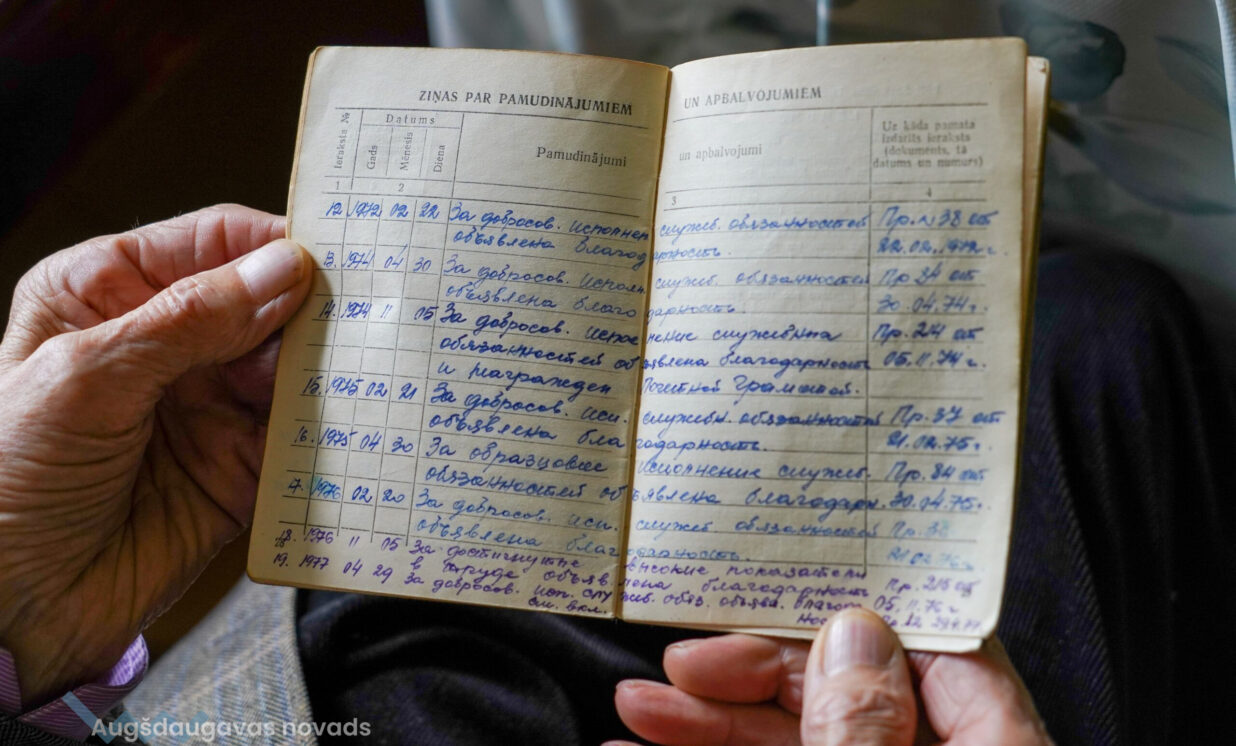 ZIŅAS PAR PAMUDINĀJUMIEM UN APBALVOJUMIEM
Ieraksta №
Datums
Gads
Mēnesis
Diena
Pamudinājumi un apbalvojumi
Uz kāda pamata
izdarīts ieraksts
(dokuments, tā
datums un numurs)
1 2 3 4
12. 1972 02 22 За добросов. исполнен служеб. обязанностей Пр. № 38 от
объявлена благодарность. 22.02.1972 г
13. 1974 04 30 За добросов. исполн. служеб. обязанностей Пр 84 от
объявлена благодарность. 30.04.74 г.
14. 1974 11 05 За добросов. исполнение служебны Пр. 214 от
обязанностей объявлена благодарность 05.11.74 г.
и награжден Почетной Грамотой.
15. 1975 02 21 За добросов. исп. служебн. обязанностей Пр. 37 от
объявлена благодарность. 21.02.75 г.
16. 1975 04 30 За образцовые исполнение служеб. Пр. 84 от
обязанностей объявлена благодарн. 30.04.75 г.
17. 1976 02 20 За добросов. исп. служеб обязанностей Пр. 38
объявлена благодарность.
18. 1976 11 05 За достигнутые высокие показатели Пр. 215 от
в труде объявлена благодарность 05.11.76 г
19. 1977 04 29 За добросов. исп. служеб. обяз. объявл. благод.
см. вкл.
Augšdaugavas novads